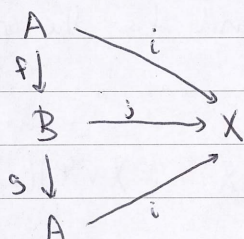 A i
f
B j X
g
A i